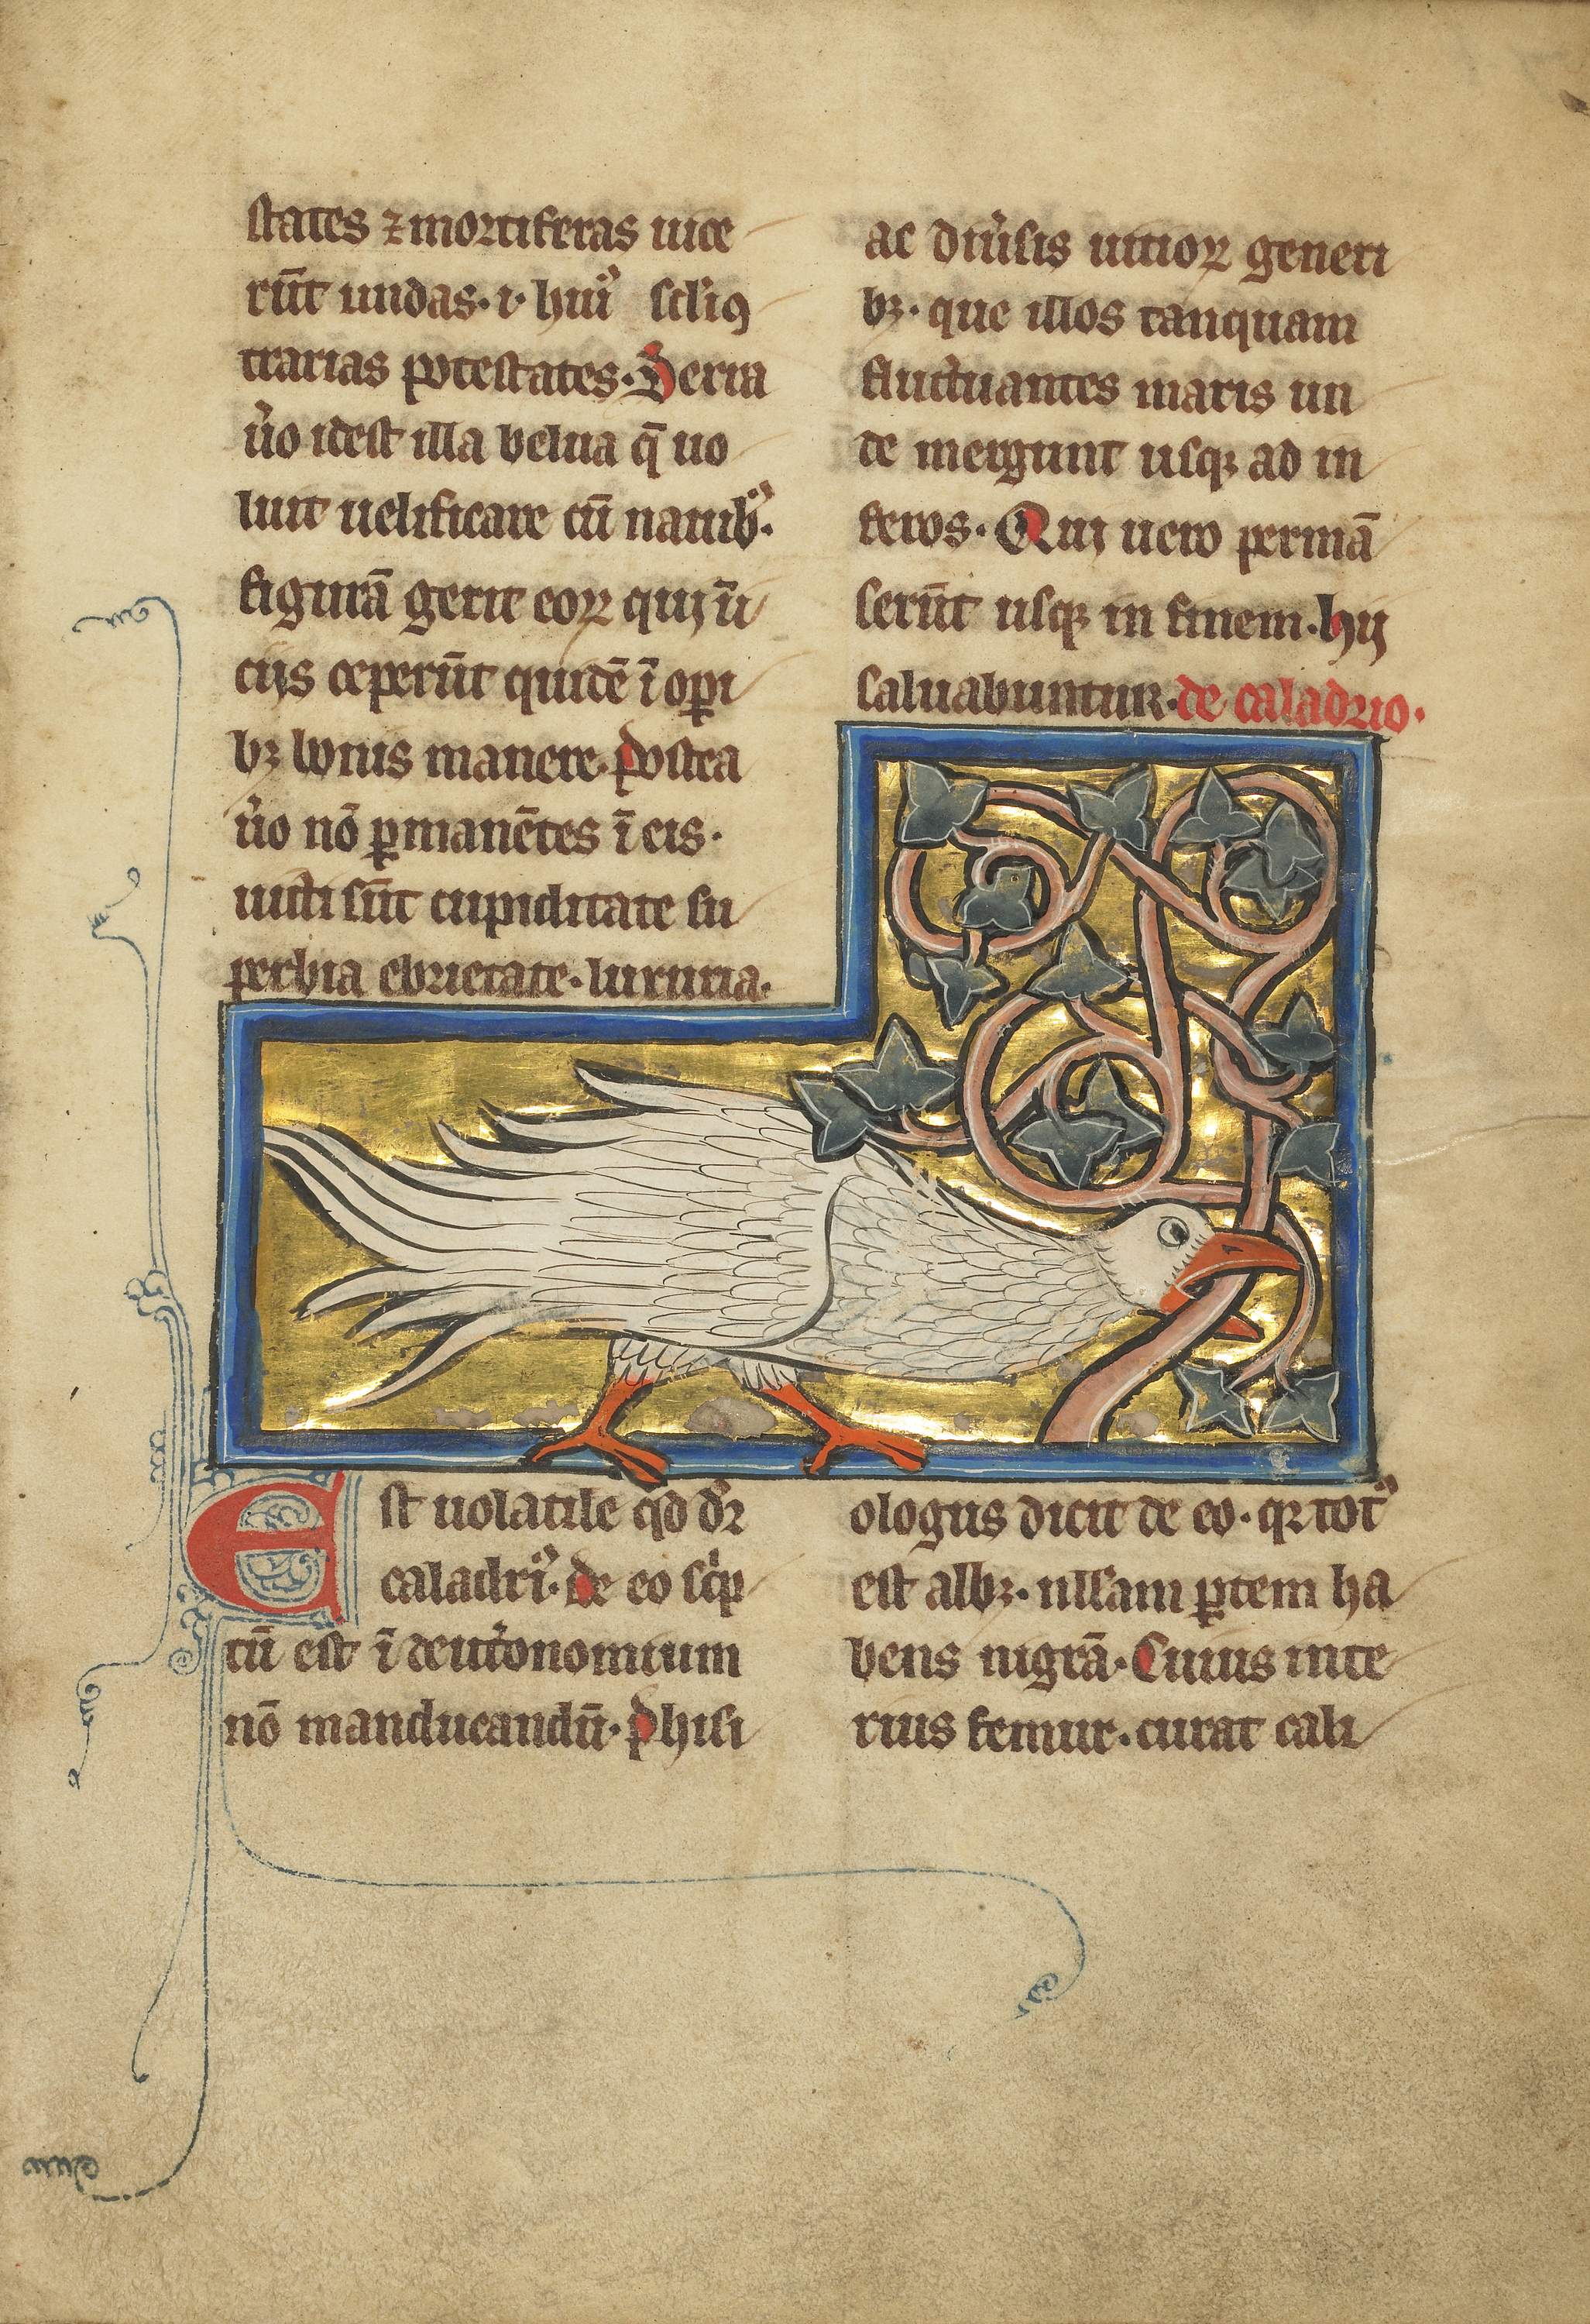 states ⁊ mortiferas uice
rūt undas· i· hui᷒ scl'i ꝯ
trarias potestates· Serra
u᷒o idest illa belua q̄ uo
luit uelificare cū nauib᷒·
figurā gerit eoꝝ quij ī
cijs ceperūt quidē ī oꝑi
bꝫ bonis manere· postea
u᷒o nō ꝑmanētes ī eis·
uicti sūt cupiditate su
perbia ebrietate· luxuria·
ac diu᷒sis uitioꝝ generi
bꝫ· que illos tanquam
fluctuantes maris un
de mergunt usqꝫ ad in
feros· Qui uero permā
serūt usqꝫ in finem· hij
saluabuntur· de caladrio·
Est uolatile qd dr̄
caladri᷒· de eo sc'p
tū est ī deut'onomium
nō manducandū· phisi
ologus dicit de eo· qꝛ tot᷒
est albꝫ· nllam ꝑtem ha
bens nigrā· Cuius inte
rius femur· curat cali